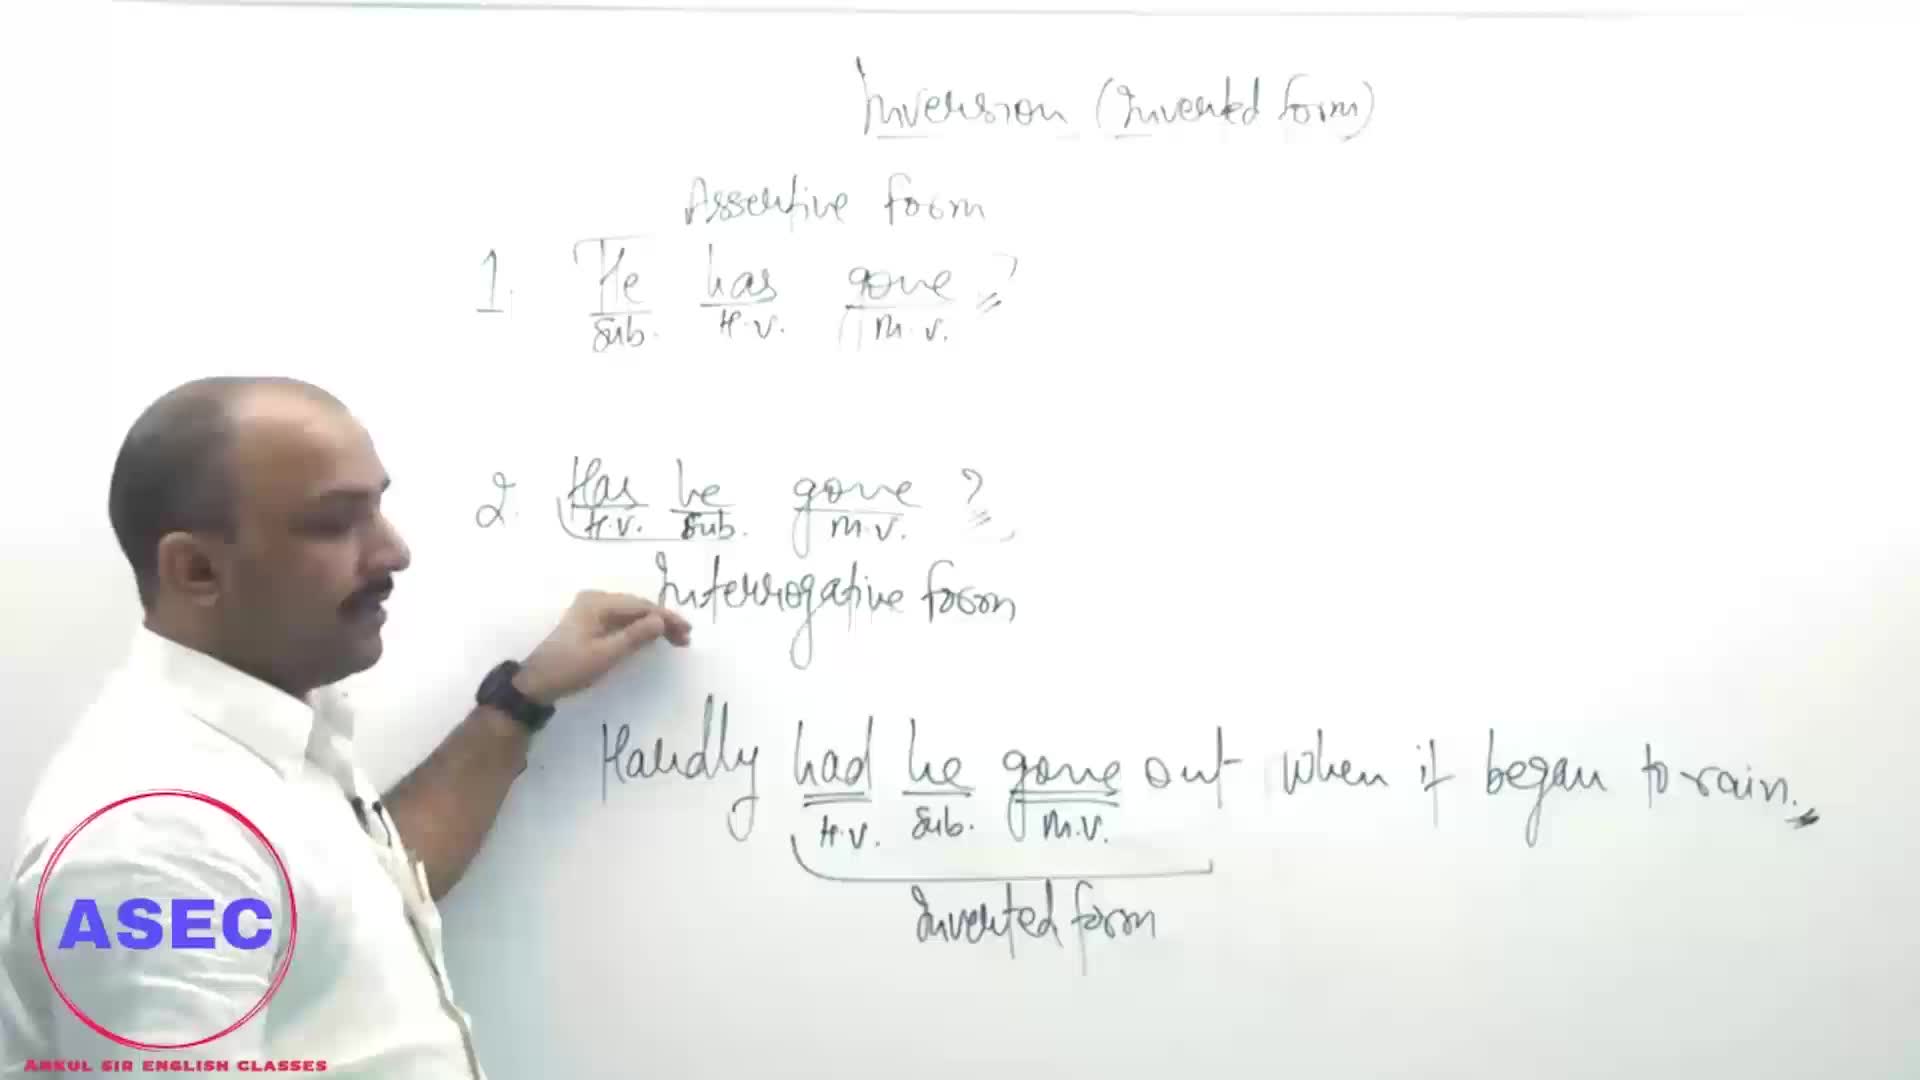 Inversion (Inverted form)
Assertive form
1. He has gone ?
Sub. H.V. M.V.
2. Has he gone ?
H.V. Sub. M.V.
Interrogative form
Hardly had he gone out when it began to rain.
H.V. Sub. M.V.
Inverted form
ASEC
ANKUL SIR ENGLISH CLASSES